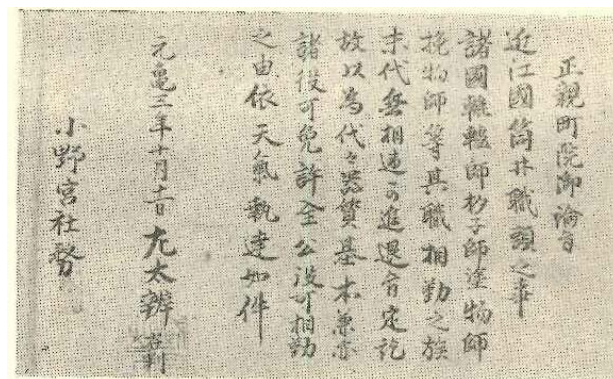 正親町院御綸旨
近江國筒井職頭之事
諸國轆轤師杓子師塗物師
挽物師等其職相勤之族
末代無相違可進退旨定訖
故以為代々器質基本兼亦
諸役可免許全公役可相勤
之由依天氣執達如件
元亀三年十月十一日左太辨
小野宮社務